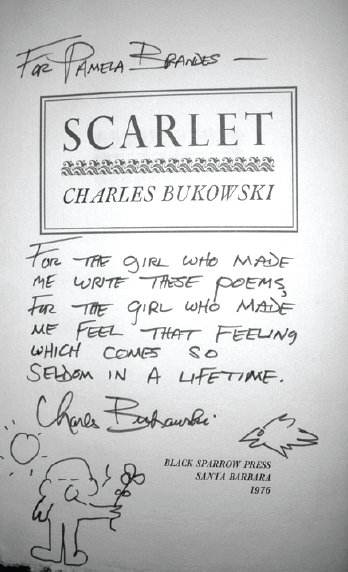 For Pamela Brandes —
SCARLET
CHARLES BUKOWSKI
FOR THE GIRL WHO MADE
ME WRITE THESE POEMS,
FOR THE GIRL WHO MADE
ME FEEL THAT FEELING
WHICH COMES SO
SELDOM IN A LIFETIME.
Charles Bukowski
BLACK SPARROW PRESS
SANTA BARBARA
1976